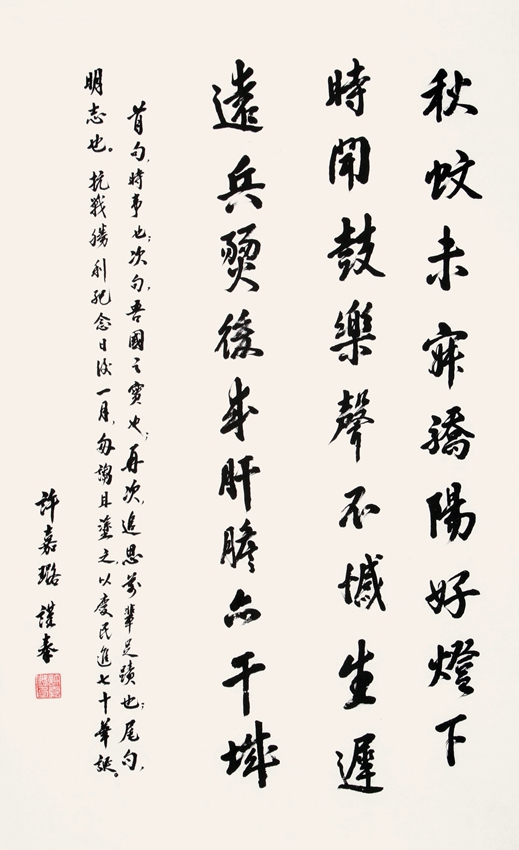 秋蚊未寐驕陽好燈下
時聞鼓樂聲不憾生遲
遠兵燹後成肝膽亦干城
首句，時事也；次句，吾國之實也；再次，追思前輩足蹟也；尾句，
明志也。抗戰勝利紀念日後一月，匆謅且塗之，以慶民進七十華誕。
許嘉璐謹奉